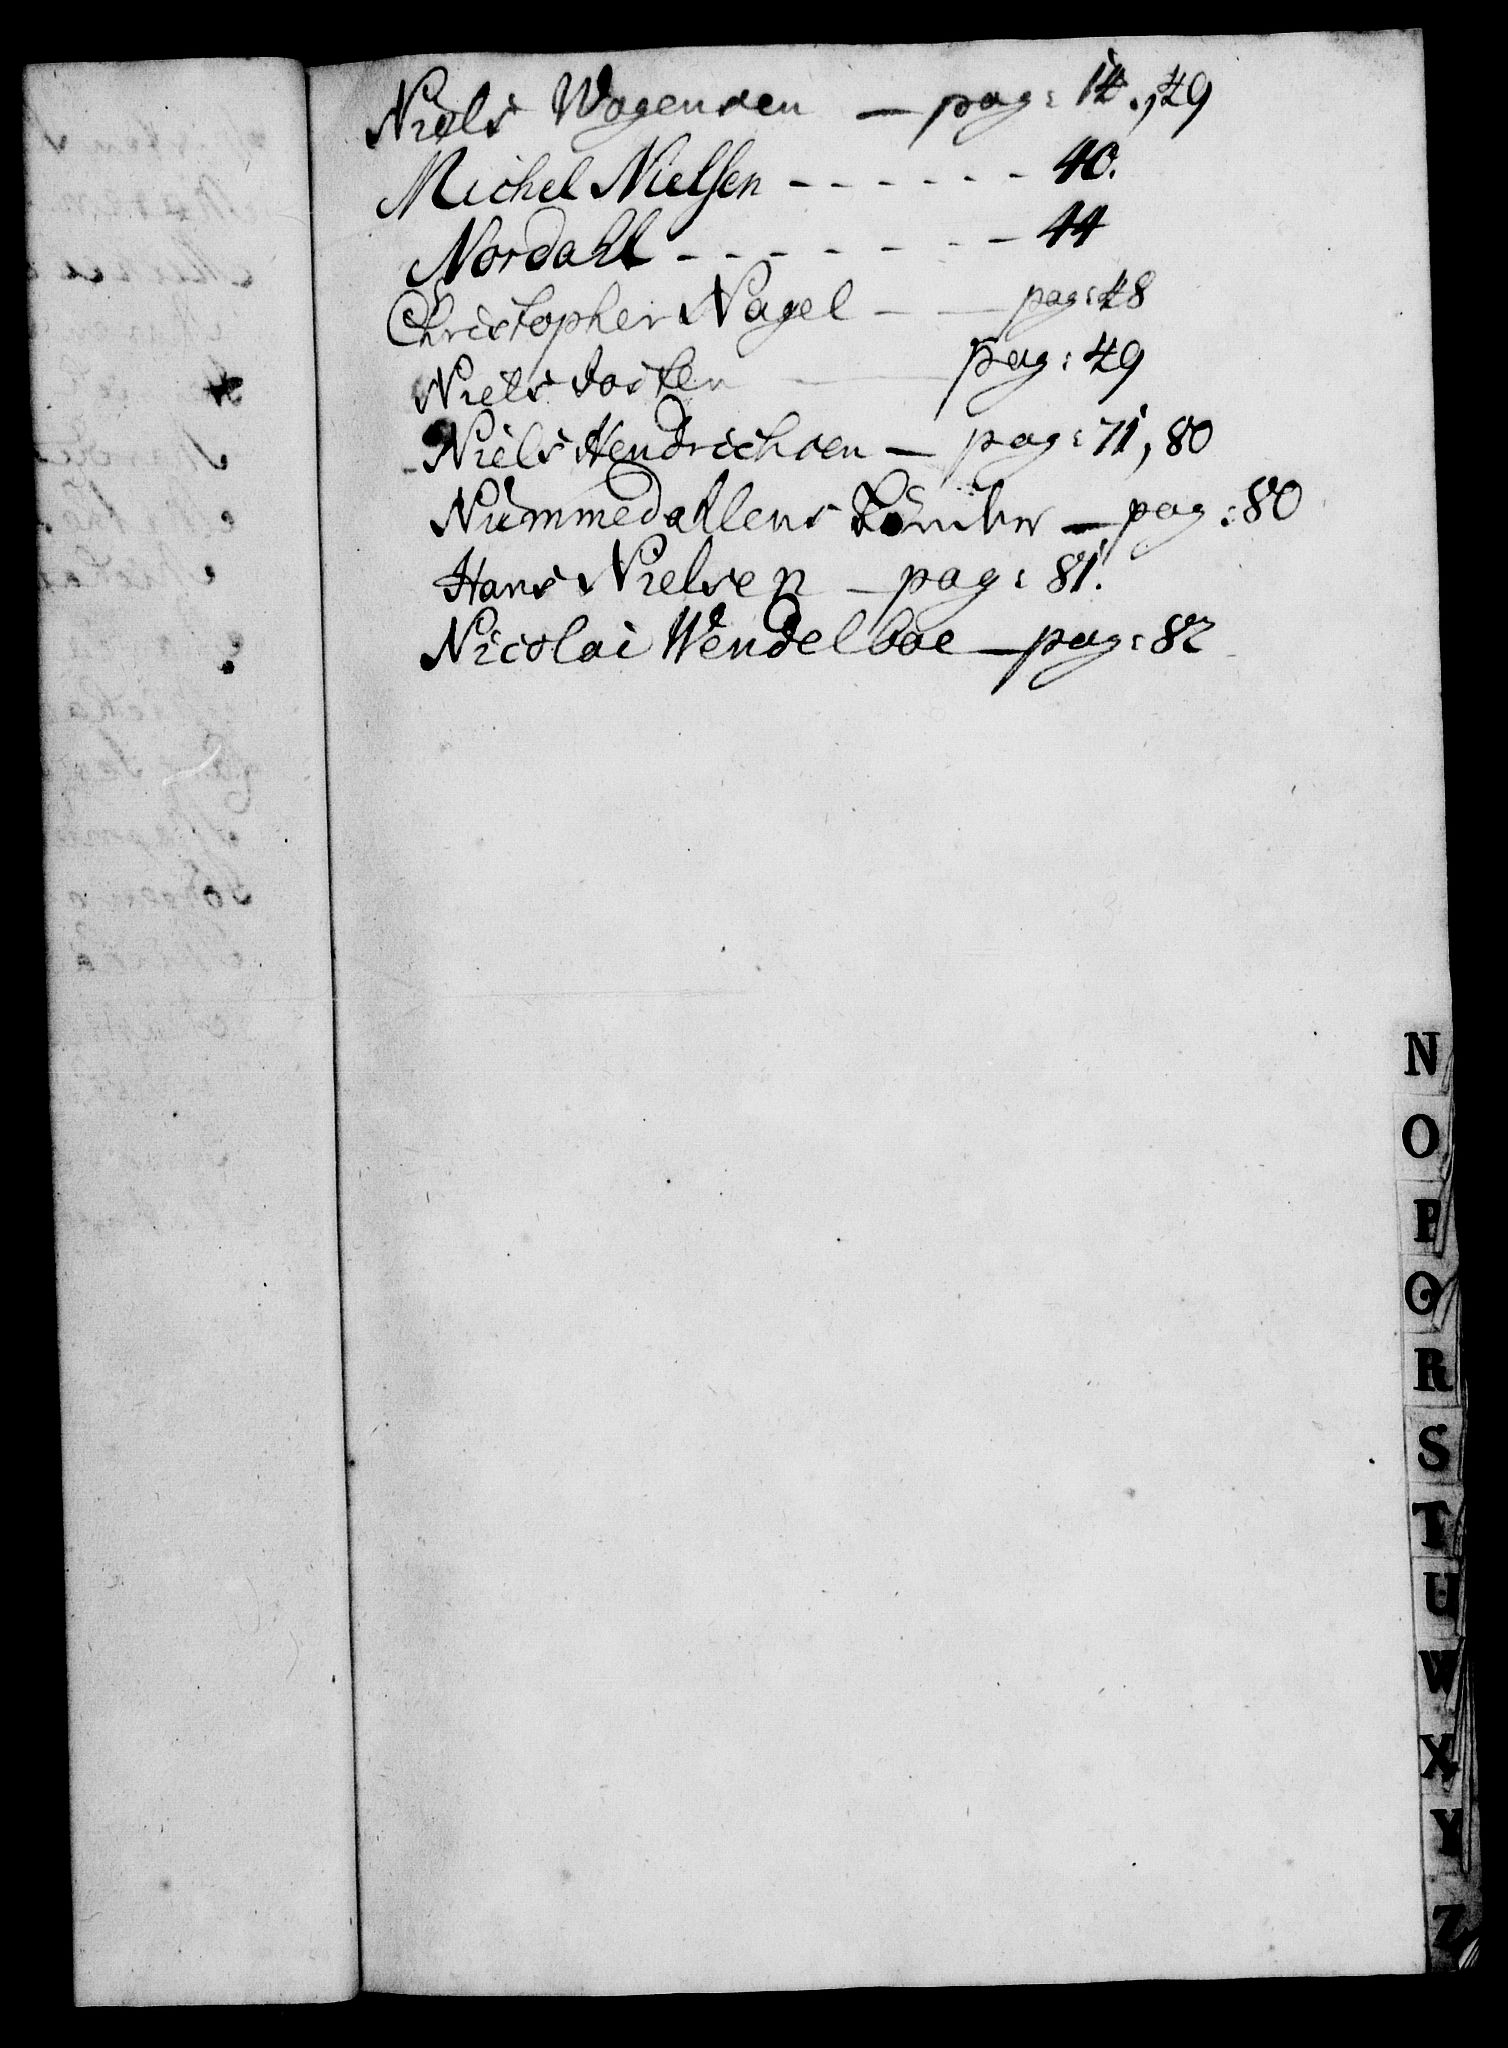 Niels Wogensen — pag: 14., 49
Michel Nielsen - - - - - - 40.
Nordahl - - - - - - - 44
Christopher Nagel - — pag: 48
Niels — pag: 49
Niels Hendrichsen — pag: 71, 80
Nummedahlens — pag: 80
Hans Nielsen — pag: 81.
Nicolai Wendelboe — pag: 82
N
O
P
Q
R
S
T
U
W
X
Y
Z